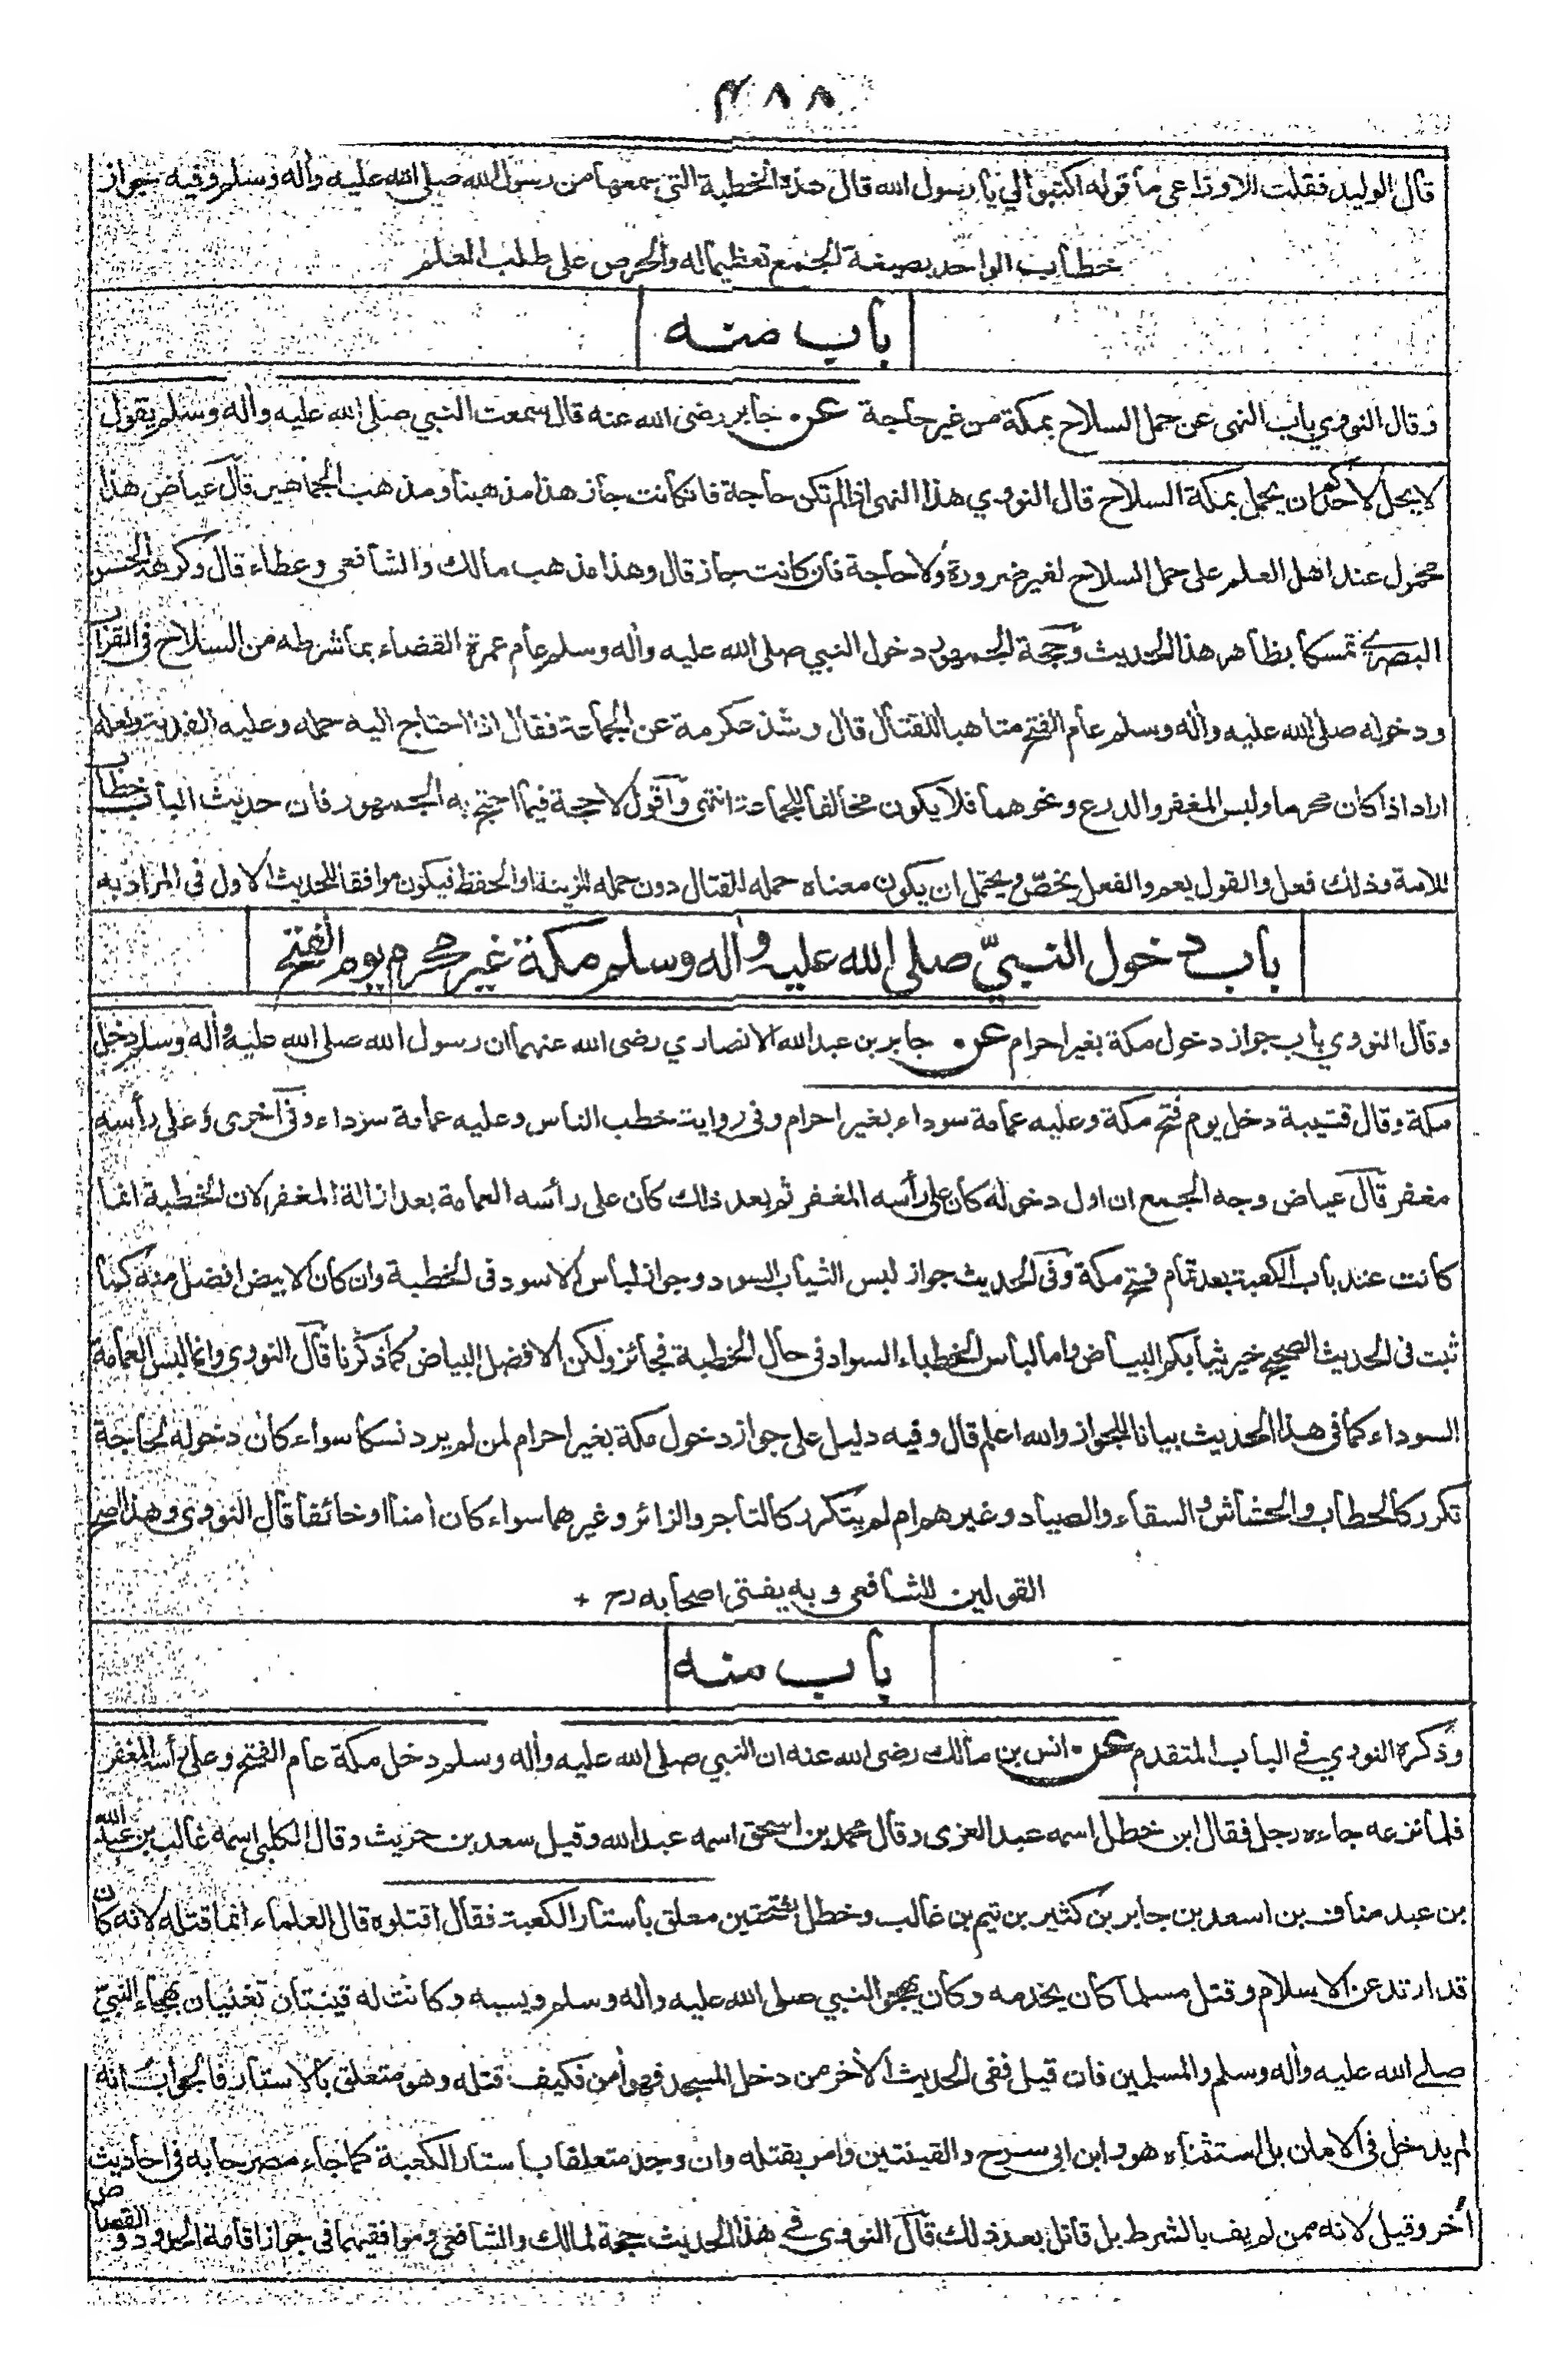 ٤٨٨
قال الوليد فقلت للاوزاعى ما قوله اكتبوا لي يا رسول الله قال هذه الخطبة التى سمعها من رسول الله صلى الله عليه وأله وسلم وفيه جواز
خطاب الواحد بصيغة الجمع تعظيما له والحرص على طلب العلم
باب منه
وقال النووي باب النهى عن حمل السلاح بمكة من غير حاجة عن جابر رضى الله عنه قال سمعت النبي صلى الله عليه وأله وسلم يقول
لا يحل لاحدكم ان يحمل بمكة السلاح قال النووي هذا النهى اذا لم تكن حاجة فان كانت جاز هذا مذهبنا ومذهب الجماهير قال عياض هذا
محمول عند اهل العلم على حمل السلاح لغير ضرورة ولا حاجة فان كانت جاز قال وهذا مذهب مالك والشافعى وعطاء قال وكرهه الحسن
البصري تمسكا بظاهر هذا الحديث وحجة الجمهور دخول النبي صلى الله عليه وأله وسلم عام عمرة القضاء بما شرطه من السلاح فى القراب
ودخوله صلى الله عليه وأله وسلم عام الفتح متاهبا للقتال قال وشذ عكرمة عن الجماعة فقال اذا احتاج اليه حمله وعليه الفدية ولعله
اراد اذا كان محرما ولبس المغفر والدرع ونحوهما فلا يكون مخالفا للجماعة انتهى واقول لا حجة فيما احتج به الجمهور فان حديث الباب خطاب
للامة وذلك فعل والقول يعم والفعل يخصّ ويحتمل ان يكون معناه حمله للقتال دون حمله للزينة او الحفظ فيكون موافقا للحديث الاول فى المراد به
باب دخول النبيّ صلى الله عليه وأله وسلم مكة غير محرم يوم الفتح
وقال النووي باب جواز دخول مكة بغير احرام عن جابر بن عبد الله الانصاري رضى الله عنهما ان رسول الله صلى الله عليه وأله وسلم دخل
مكة وقال قتيبة دخل يوم فتح مكة وعليه عمامة سوداء بغير احرام وفى رواية خطب الناس وعليه عمامة سوداء وفى اخرى وعلى رأسه
مغفر قال عياض وجه الجمع ان اول دخوله كان على رأسه المغفر ثم بعد ذلك كان على رأسه العمامة بعد ازالة المغفر لان الخطبة انما
كانت عند باب الكعبة بعد تمام فتح مكة وفى الحديث جواز لبس الثياب السود وجواز لباس الاسود فى الخطبة وان كان الابيض افضل منه كما
ثبت فى الحديث الصحيح خير ثيابكم البياض واما لباس الخطباء السواد فى حال الخطبة فجائز ولكن الافضل البياض كما ذكرنا قال النووى وانما لبس العمامة
السوداء كما فى هذا الحديث بيانا للجواز والله اعلم قال وفيه دليل على جواز دخول مكة بغير احرام لمن لم يرد نسكا سواء كان دخوله لحاجة
تكرر كالحطاب والحشاش والسقاء والصياد وغيرهم ام لم يتكرر كالتاجر والزائر وغيرهما سواء كان أمنا او خائفا قال النووى وهذا اصح
القولين للشافعى وبه يفتى اصحابه رح +
باب منه
وذكره النووي في الباب المتقدم عن انس بن مالك رضى الله عنه ان النبي صلى الله عليه وأله وسلم دخل مكة عام الفتح وعلى رأسه المغفر
فلما نزعه جاءه رجل فقال ابن خطل اسمه عبد العزى وقال محمد بن اسحق اسمه عبد الله وقيل سعد بن حريث وقال الكلبى اسمه غالب بن عبد الله
بن عبد مناف بن اسعد بن جابر بن كثير بن تيم بن غالب وخطل بفتحتين معلق بأستار الكعبة فقال اقتلوه قال العلماء انما قتله لانه كان
قد ارتد عن الاسلام وقتل مسلما كان يخدمه وكان يهجو النبي صلى الله عليه وأله وسلم ويسبه وكانت له قينتان تغنيان بهجاء النبيّ
صلے الله عليه وأله وسلم والمسلمين فان قيل ففى الحديث الأخر من دخل المسجد فهو أمن فكيف قتله وهو متعلق بالاستار فالجواب انه
لم يدخل فى الامان بل استثناه هو وابن ابى سرح والقينتين وامر بقتله وان وجد متعلقا باستار الكعبة كما جاء مصرحا به فى احاديث
أخر وقيل لانه ممن لم يف بالشرط بل قاتل بعد ذلك قال النووى في هذا الحديث حجة لمالك والشافعى وموافقيهما فى جواز اقامة الحدود والقصاص